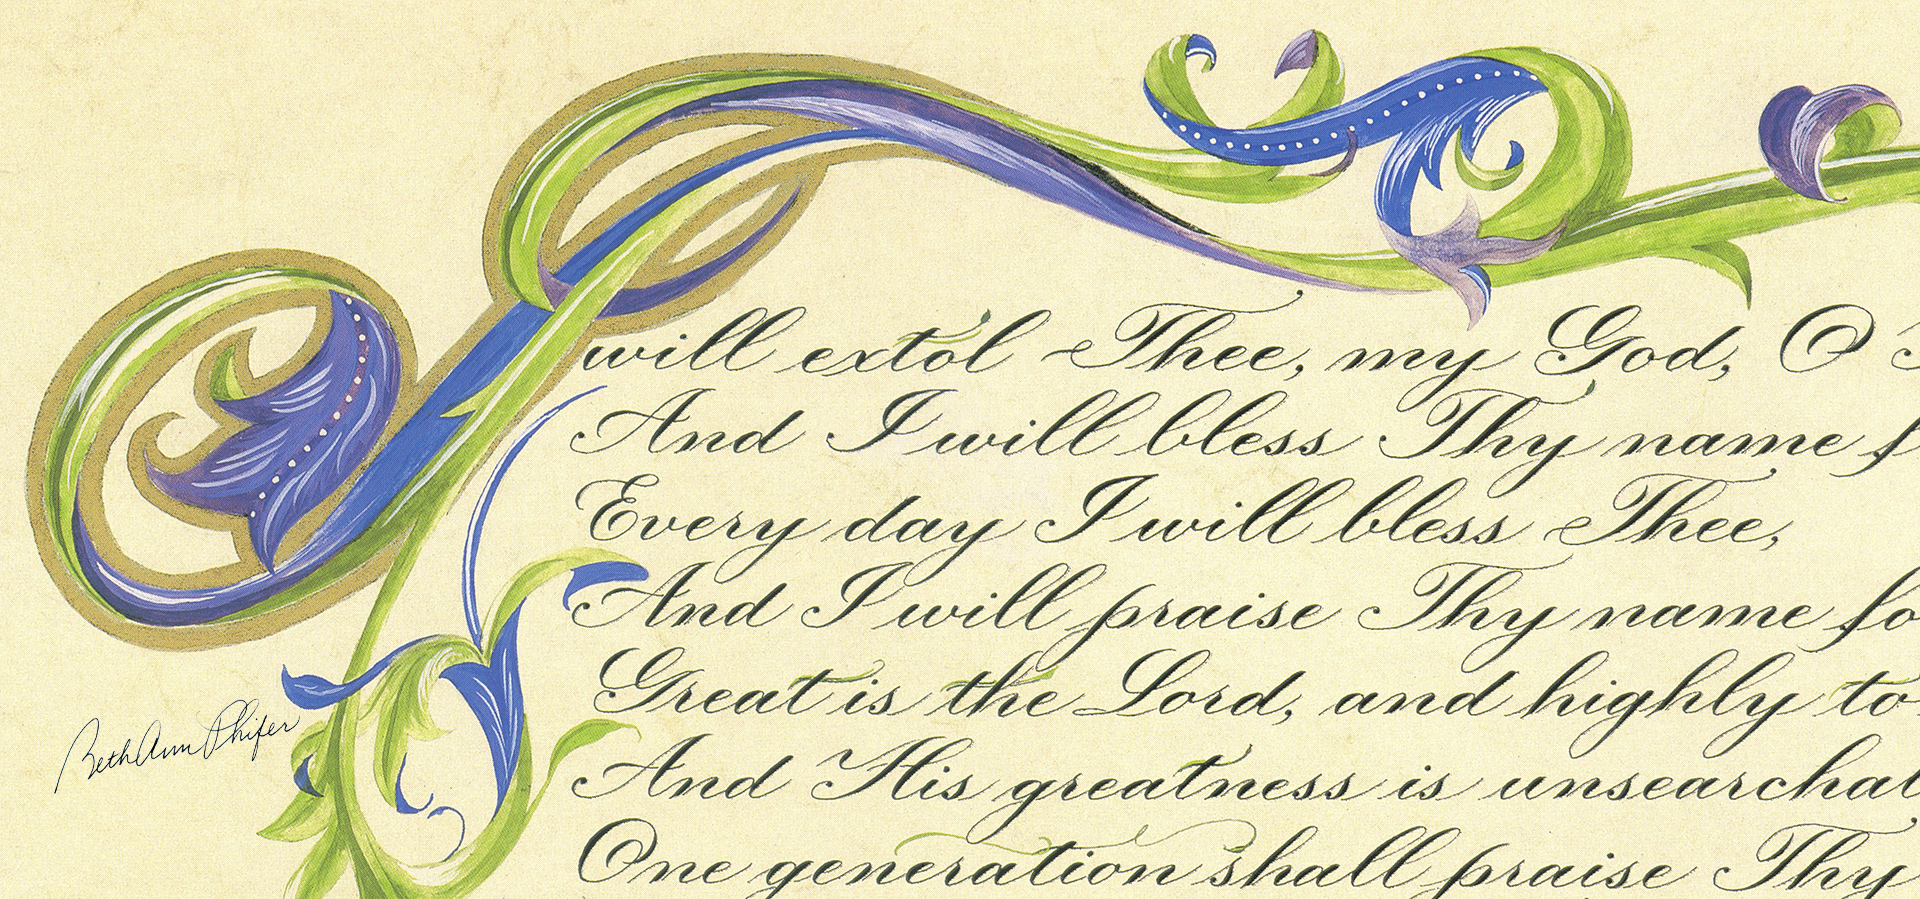 I will extol Thee, my God, O
And I will bless Thy name f
Every day I will bless Thee,
And I will praise Thy name fo
Great is the Lord, and highly to
And His greatness is unsearchab
One generation shall praise Thy
BethAnn Phifer